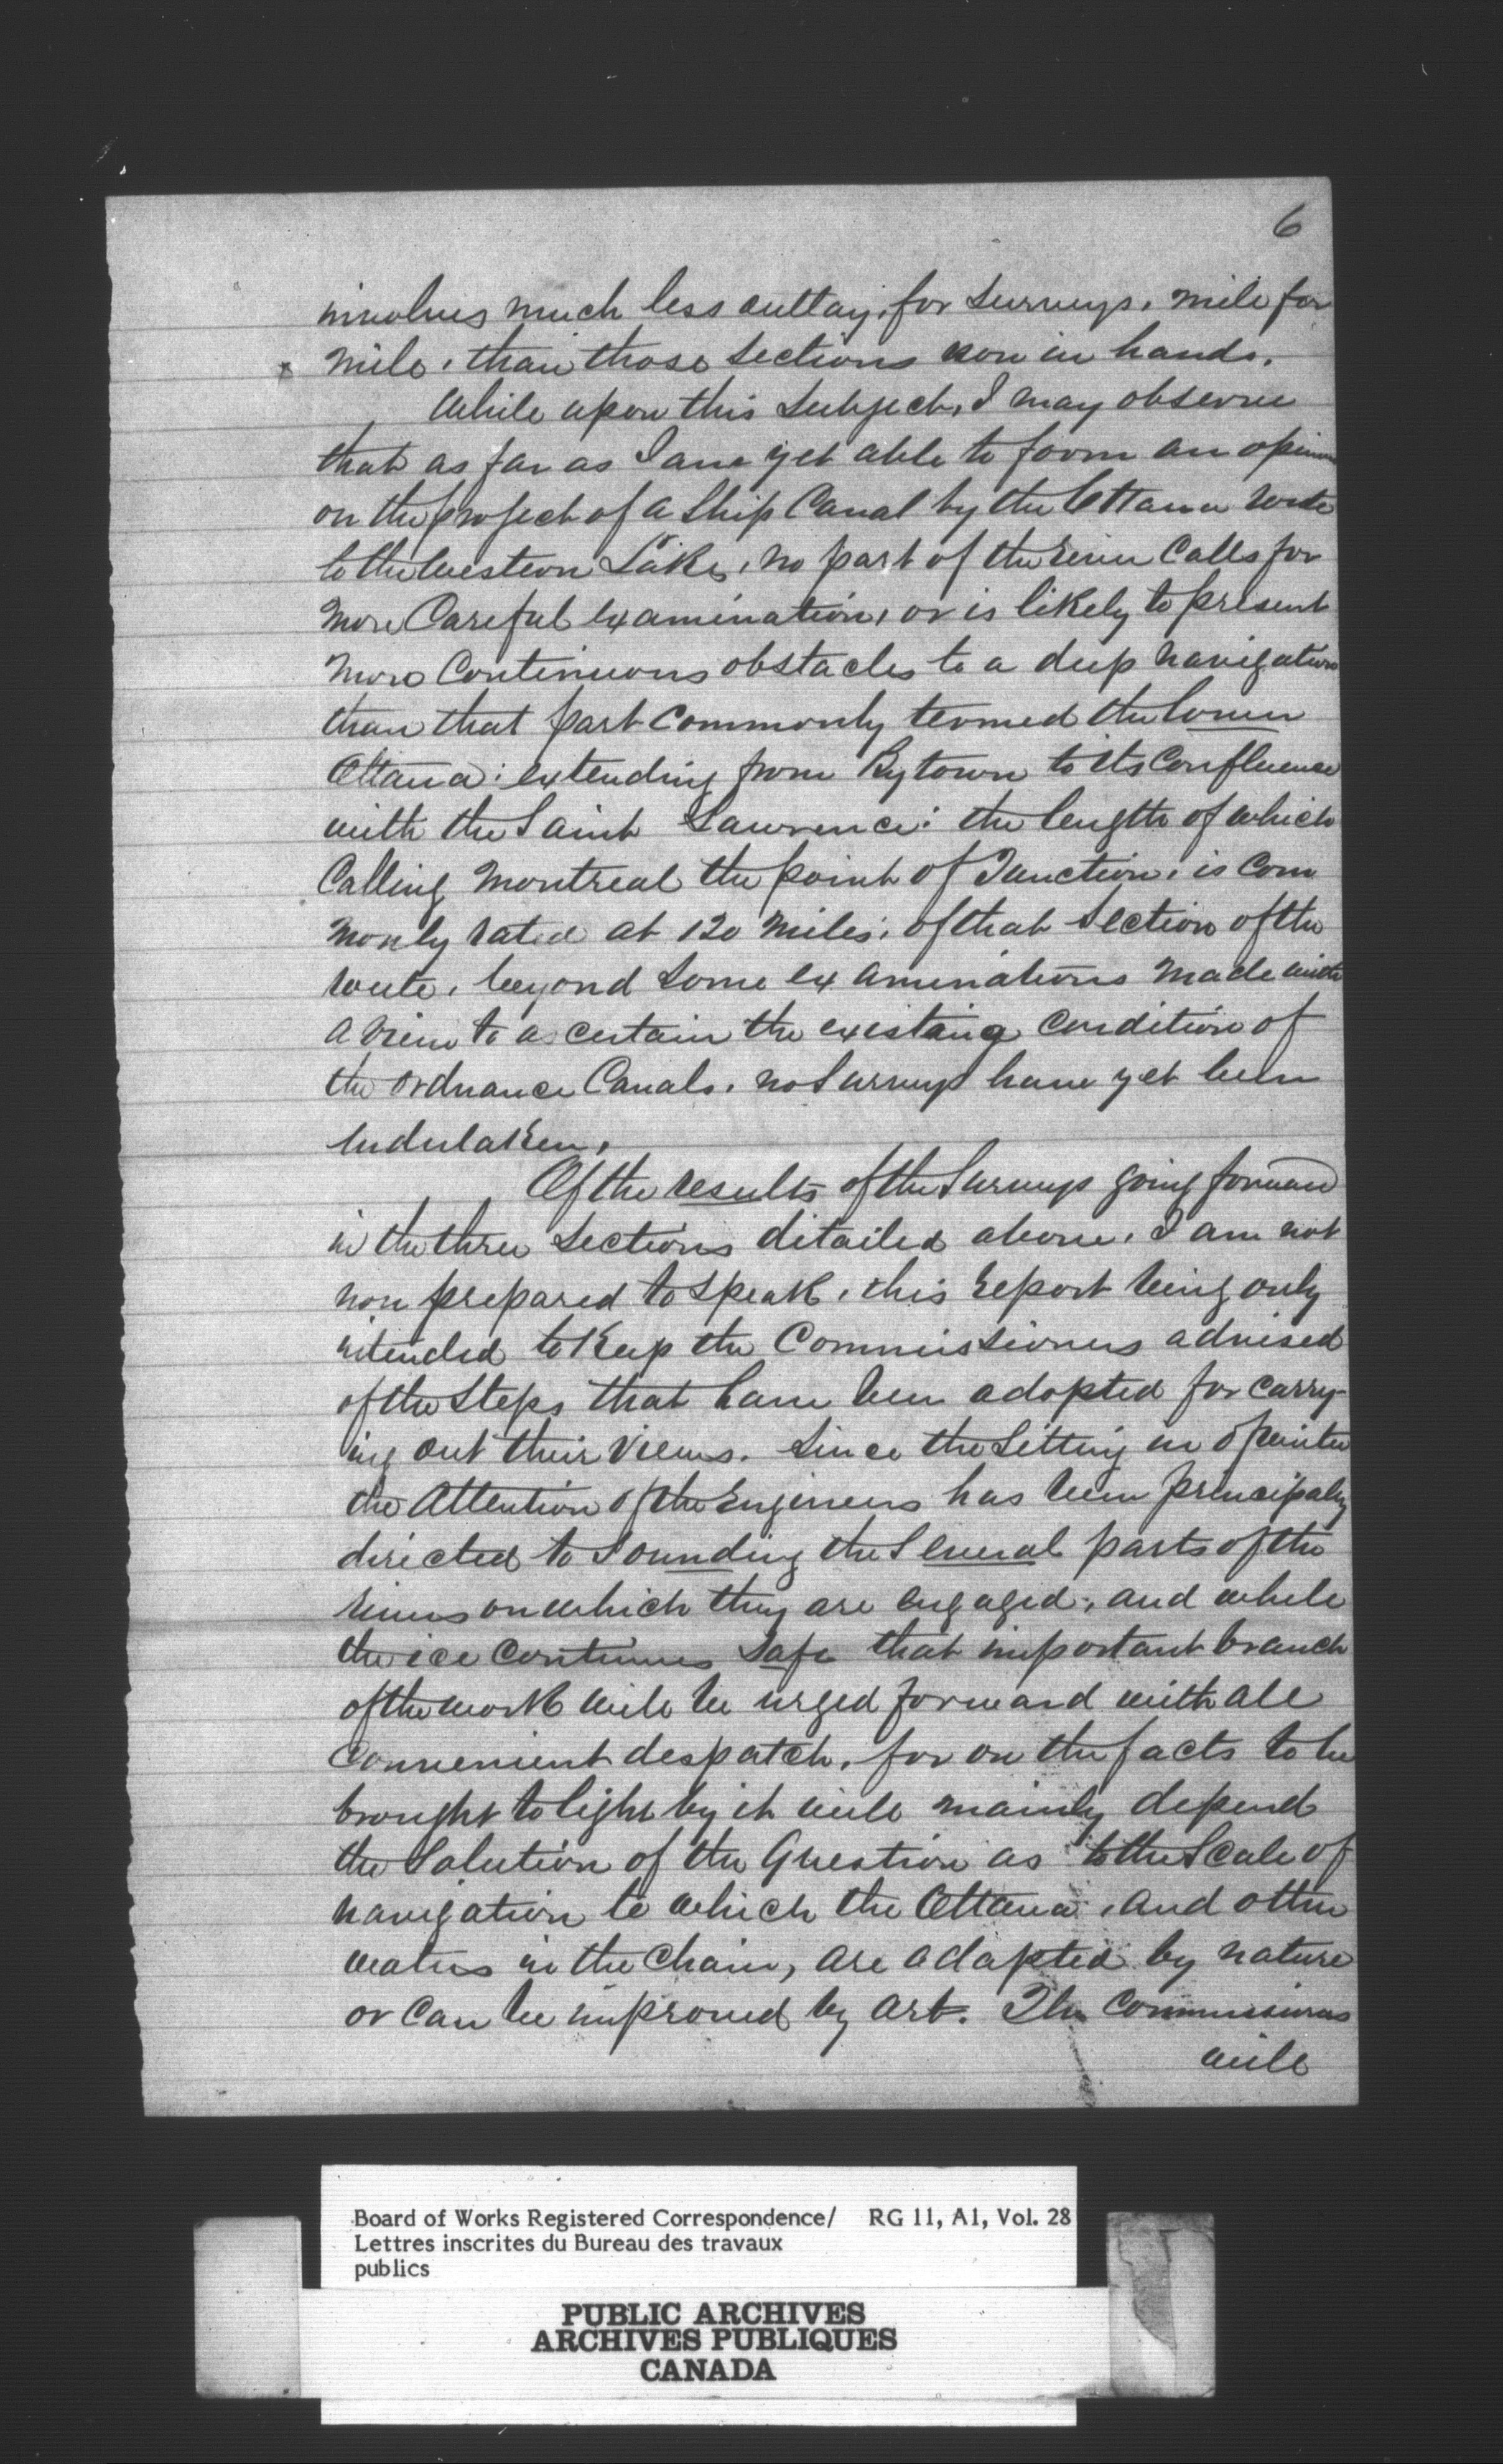 6
involves much less outlay, for surveys, mile for
mile, than those sections now in hands.
While upon this subject, I may observe
that as far as I am yet able to form an opinion
on the project of a Ship Canal by the Ottawa route
to the Western Lakes, no part of the river calls for
more careful examination, or is likely to present
more continuous obstacles to a deep navigation
than that part commonly termed the lower
Ottawa: extending from Bytown to its confluence
with the Saint Lawrence: the length of which
calling Montreal the point of Junction, is com
monly rated at 120 miles; of that section of the
route, beyond some examinations made with
a view to ascertain the existing condition of
the Ordnance Canals, no Surveys have yet been
undertaken.
Of the results of the Surveys going forward
in the three sections detailed above, I am not
now prepared to speak, this report being only
intended to keep the Commissioners advised
of the steps that have been adopted for carry-
ing out their views. Since the setting in of winter
the attention of the Engineers has been principally
directed to sounding the several parts of the
rivers on which they are engaged; and while
the ice continues safe that important branch
of the work will be urged forward with all
convenient despatch, for on the facts to be
brought to light by it will mainly depend
the solution of the question as to the scale of
navigation to which the Ottawa, and other
waters in the chain, are adapted by nature
or can be improved by art. The Commissioners
will
Board of Works Registered Correspondence/ RG 11, A1, Vol. 28
Lettres inscrites du Bureau des travaux
publics
PUBLIC ARCHIVES
ARCHIVES PUBLIQUES
CANADA